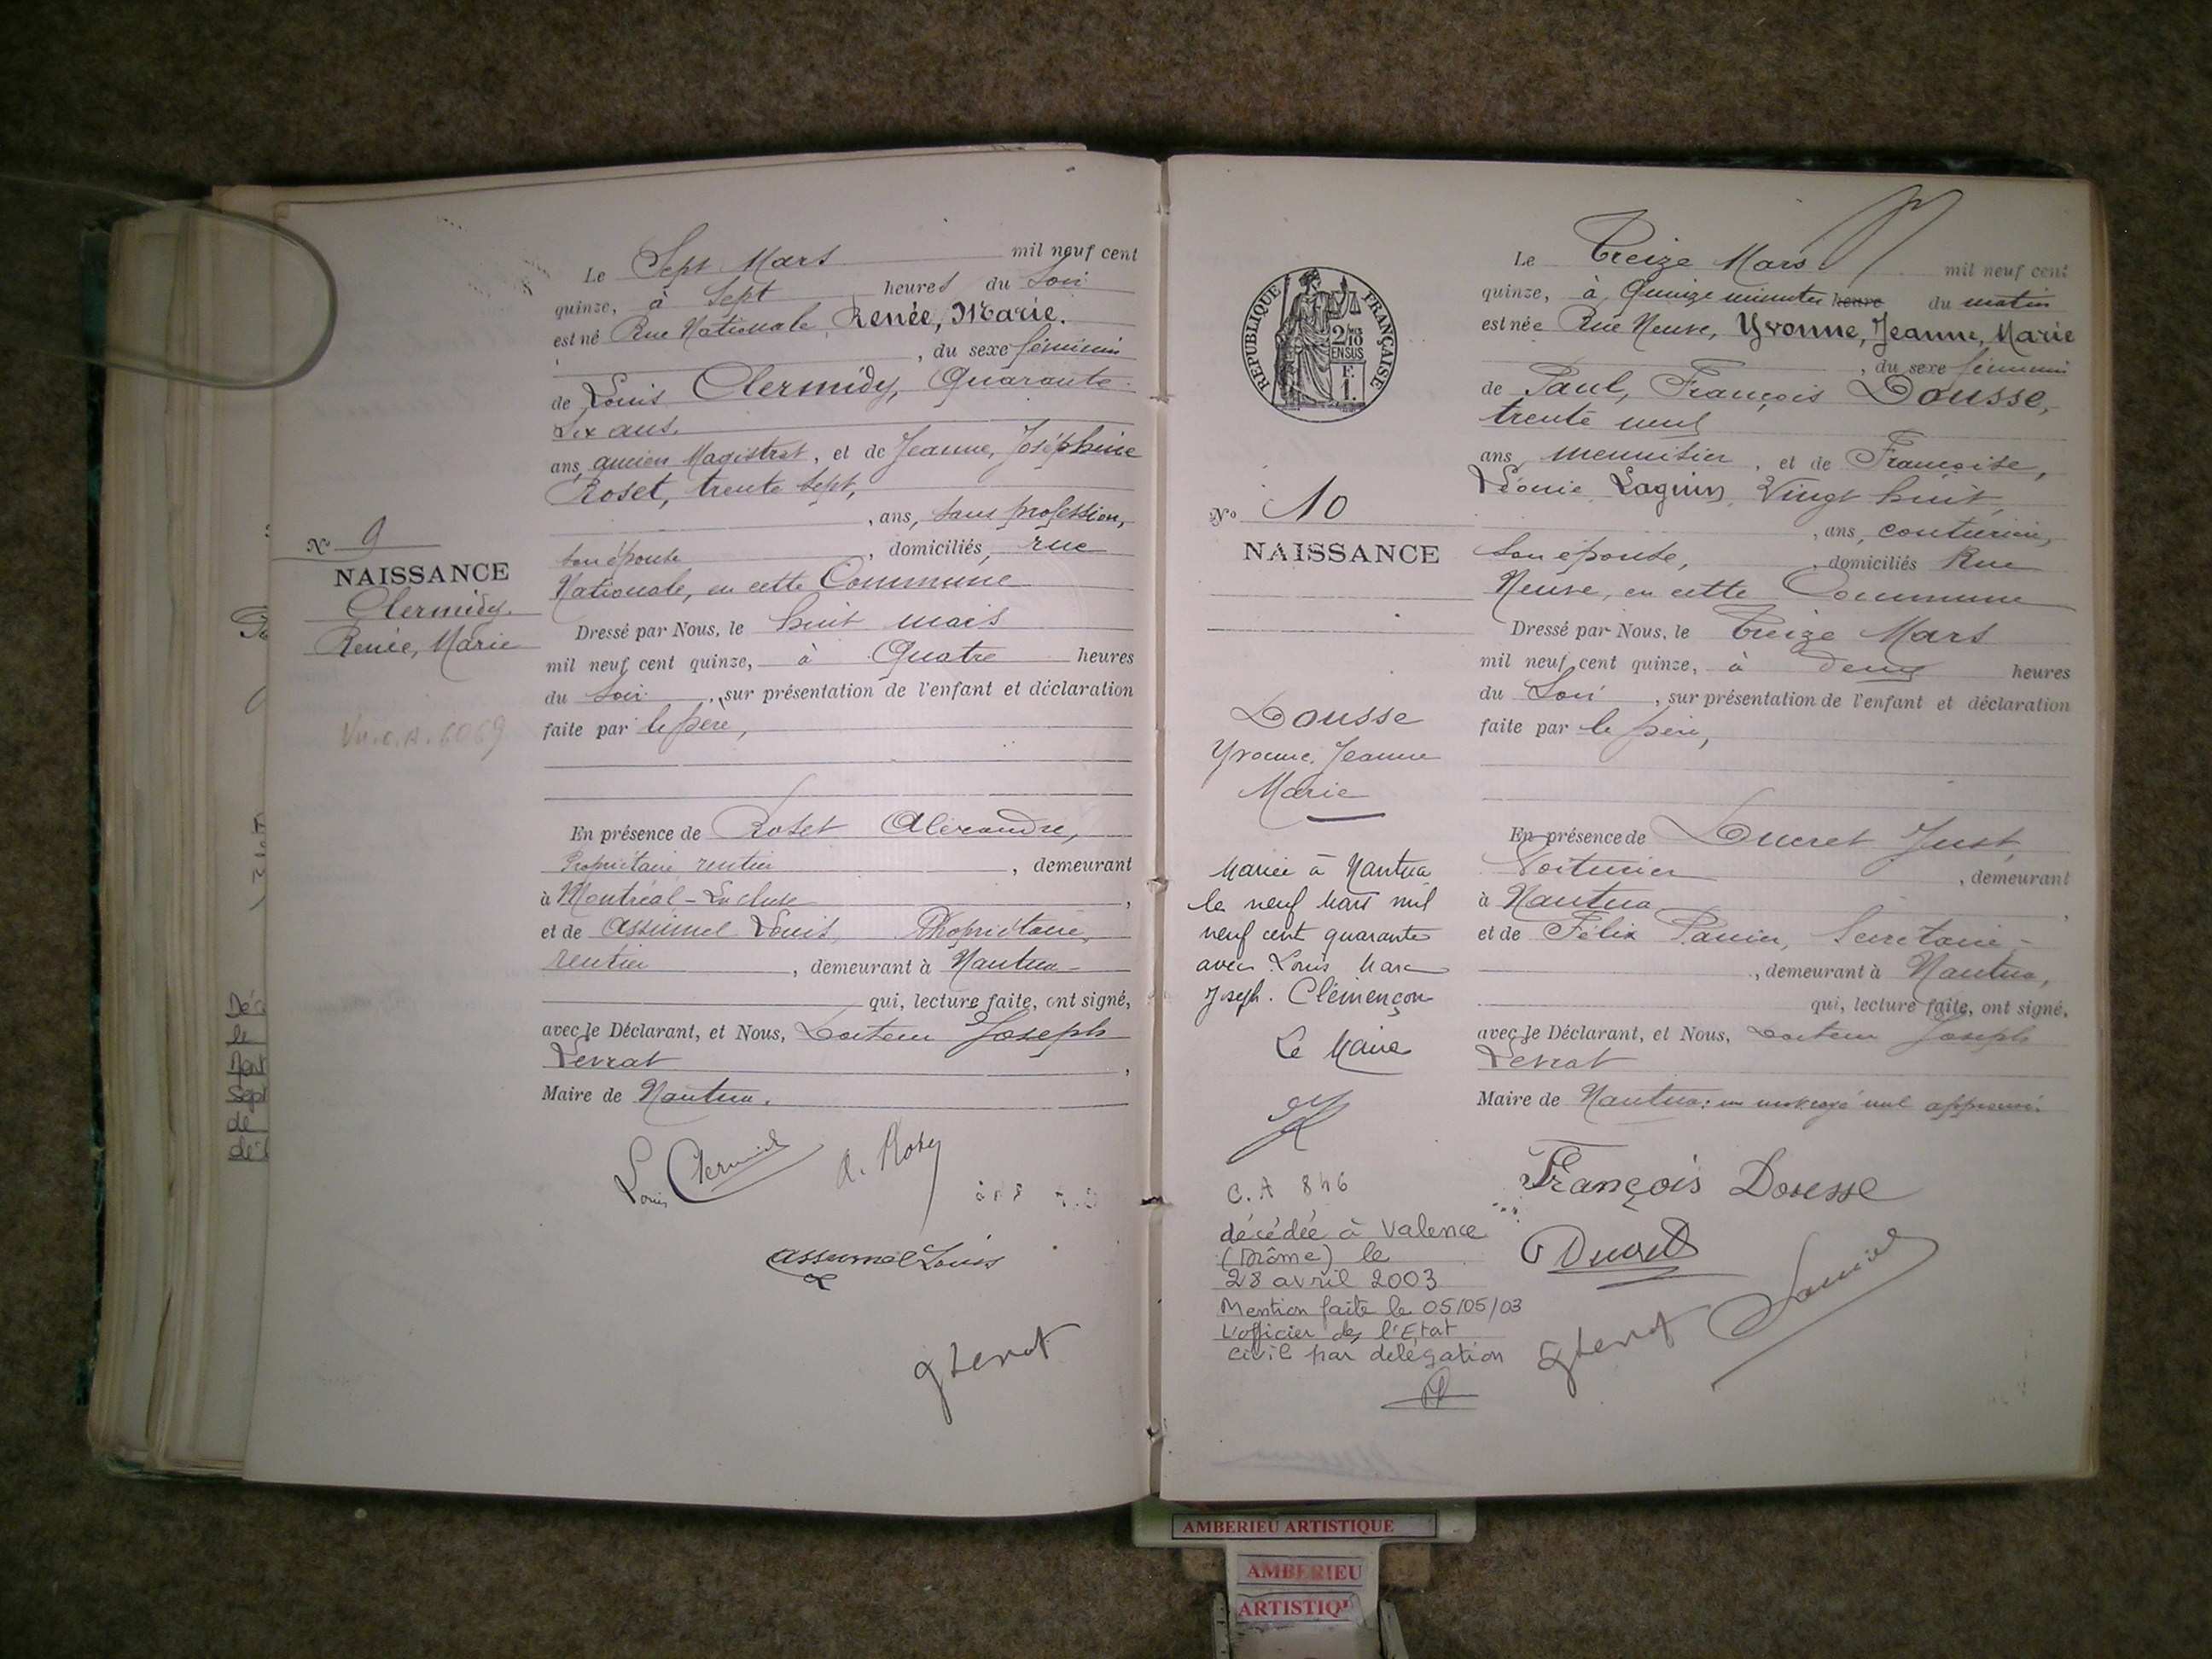 Le Sept Mars mil neuf cent
quinze, à Sept heures du Soir
est né Rue Nationale, Renée, Marie.
, du sexe féminin
de Louis Clermidy, Quarante
Six ans.
ans, ancien Magistrat, et de Jeanne, Joséphine
Roset, trente sept,
, ans, sans profession,
son épouse, domiciliés, rue
Nationale, en cette Commune
Dressé par Nous, le huit mars
mil neuf cent quinze, à Quatre heures
du Soir, sur présentation de l'enfant et déclaration
faite par le père,
En présence de Roset Alexandre,
Propriétaire rentier, demeurant
à Montréal-La cluse,
et de Assumel Louis, Propriétaire,
rentier, demeurant à Nantua
qui, lecture faite, ont signé,
avec le Déclarant, et Nous, Docteur Joseph
Levrat,
Maire de Nantua.
Nº 9
NAISSANCE
Clermidy
Renée, Marie
Vu.C.A. 6069
Louis Clermidy
A. Roset
Assumel Louis
J Levrat
Déc
le
Sept
de
RÉPUBLIQUE FRANÇAISE
2/10
EN SUS
F.
1.
Le Treize Mars mil neuf cent
quinze, à Quinze minutes heure du matin
est née Rue Neuve, Yvonne, Jeanne, Marie
, du sexe féminin
de Paul, François Dousse,
trente neuf
ans, menuisier, et de Françoise,
Léonie Laguin, Vingt huit,
, ans, couturière,
son épouse, domiciliés Rue
Neuve, en cette Commune
Dressé par Nous, le Treize Mars
mil neuf cent quinze, à deux heures
du Soir, sur présentation de l'enfant et déclaration
faite par le père,
En présence de Ducret Just,
Voiturier, demeurant
à Nantua,
et de Félix Panier, Secrétaire
, demeurant à Nantua,
qui, lecture faite, ont signé,
avec le Déclarant, et Nous, Docteur Joseph
Levrat
Maire de Nantua: un mot rayé nul approuvé
Nº 10
NAISSANCE
Dousse
Yvonne, Jeanne
Marie
Mariée à Nantua
le neuf Mars mil
neuf cent quarante
avec Louis Marc
Joseph Clémençon
Le Maire
C.A 846
décédée à Valence
(Drôme) le
28 avril 2003
Mention faite le 05/05/03
L'officier de l'Etat
civil par délégation
François Dousse
Ducret
J Levrat
AMBERIEU ARTISTIQUE
AMBERIEU
ARTISTIQU